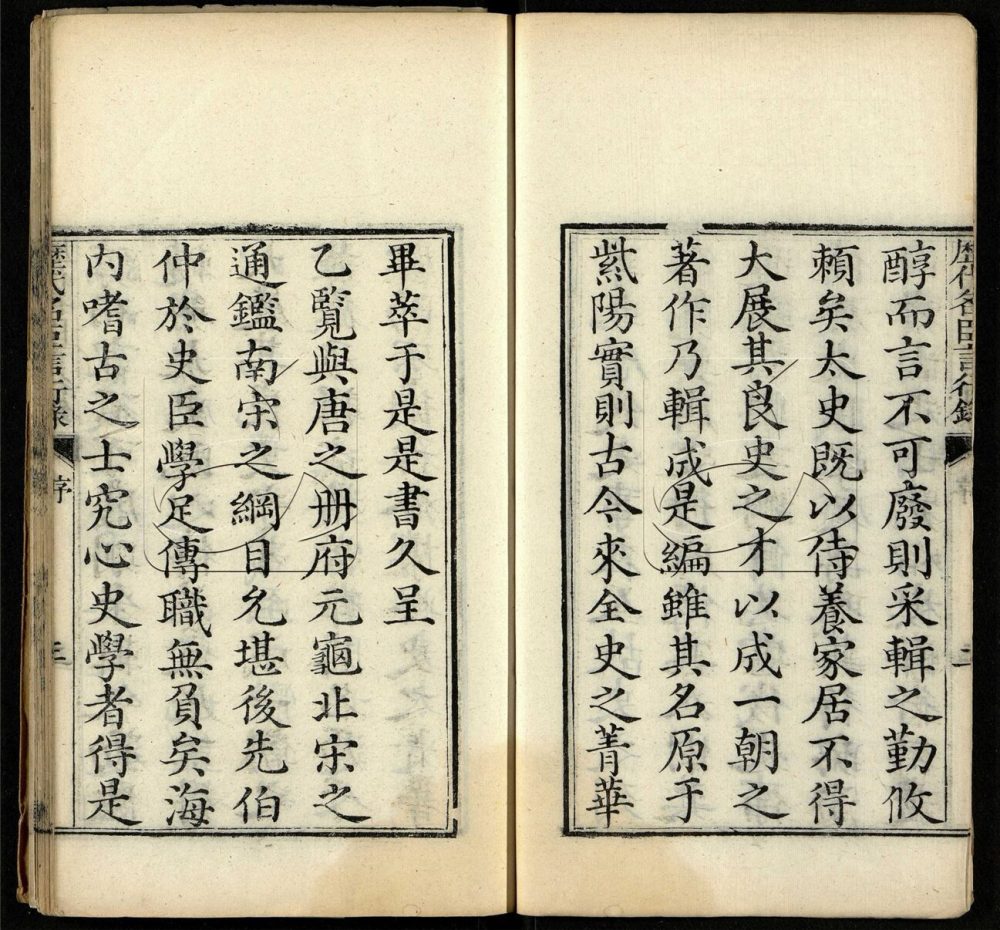 歷代名臣言行錄
序
二
醇而言不可廢則采輯之勤攸
賴矣太史既以侍養家居不得
大展其良史之才以成一朝之
著作乃輯成是編雖其名原于
紫陽實則古今來全史之菁華
畢萃于是是書久呈
乙覽與唐之册府元龜北宋之
通鑑南宋之綱目允堪後先伯
仲於史臣學足傳職無負矣海
內嗜古之士究心史學者得是
歷代名臣言行錄
序
三